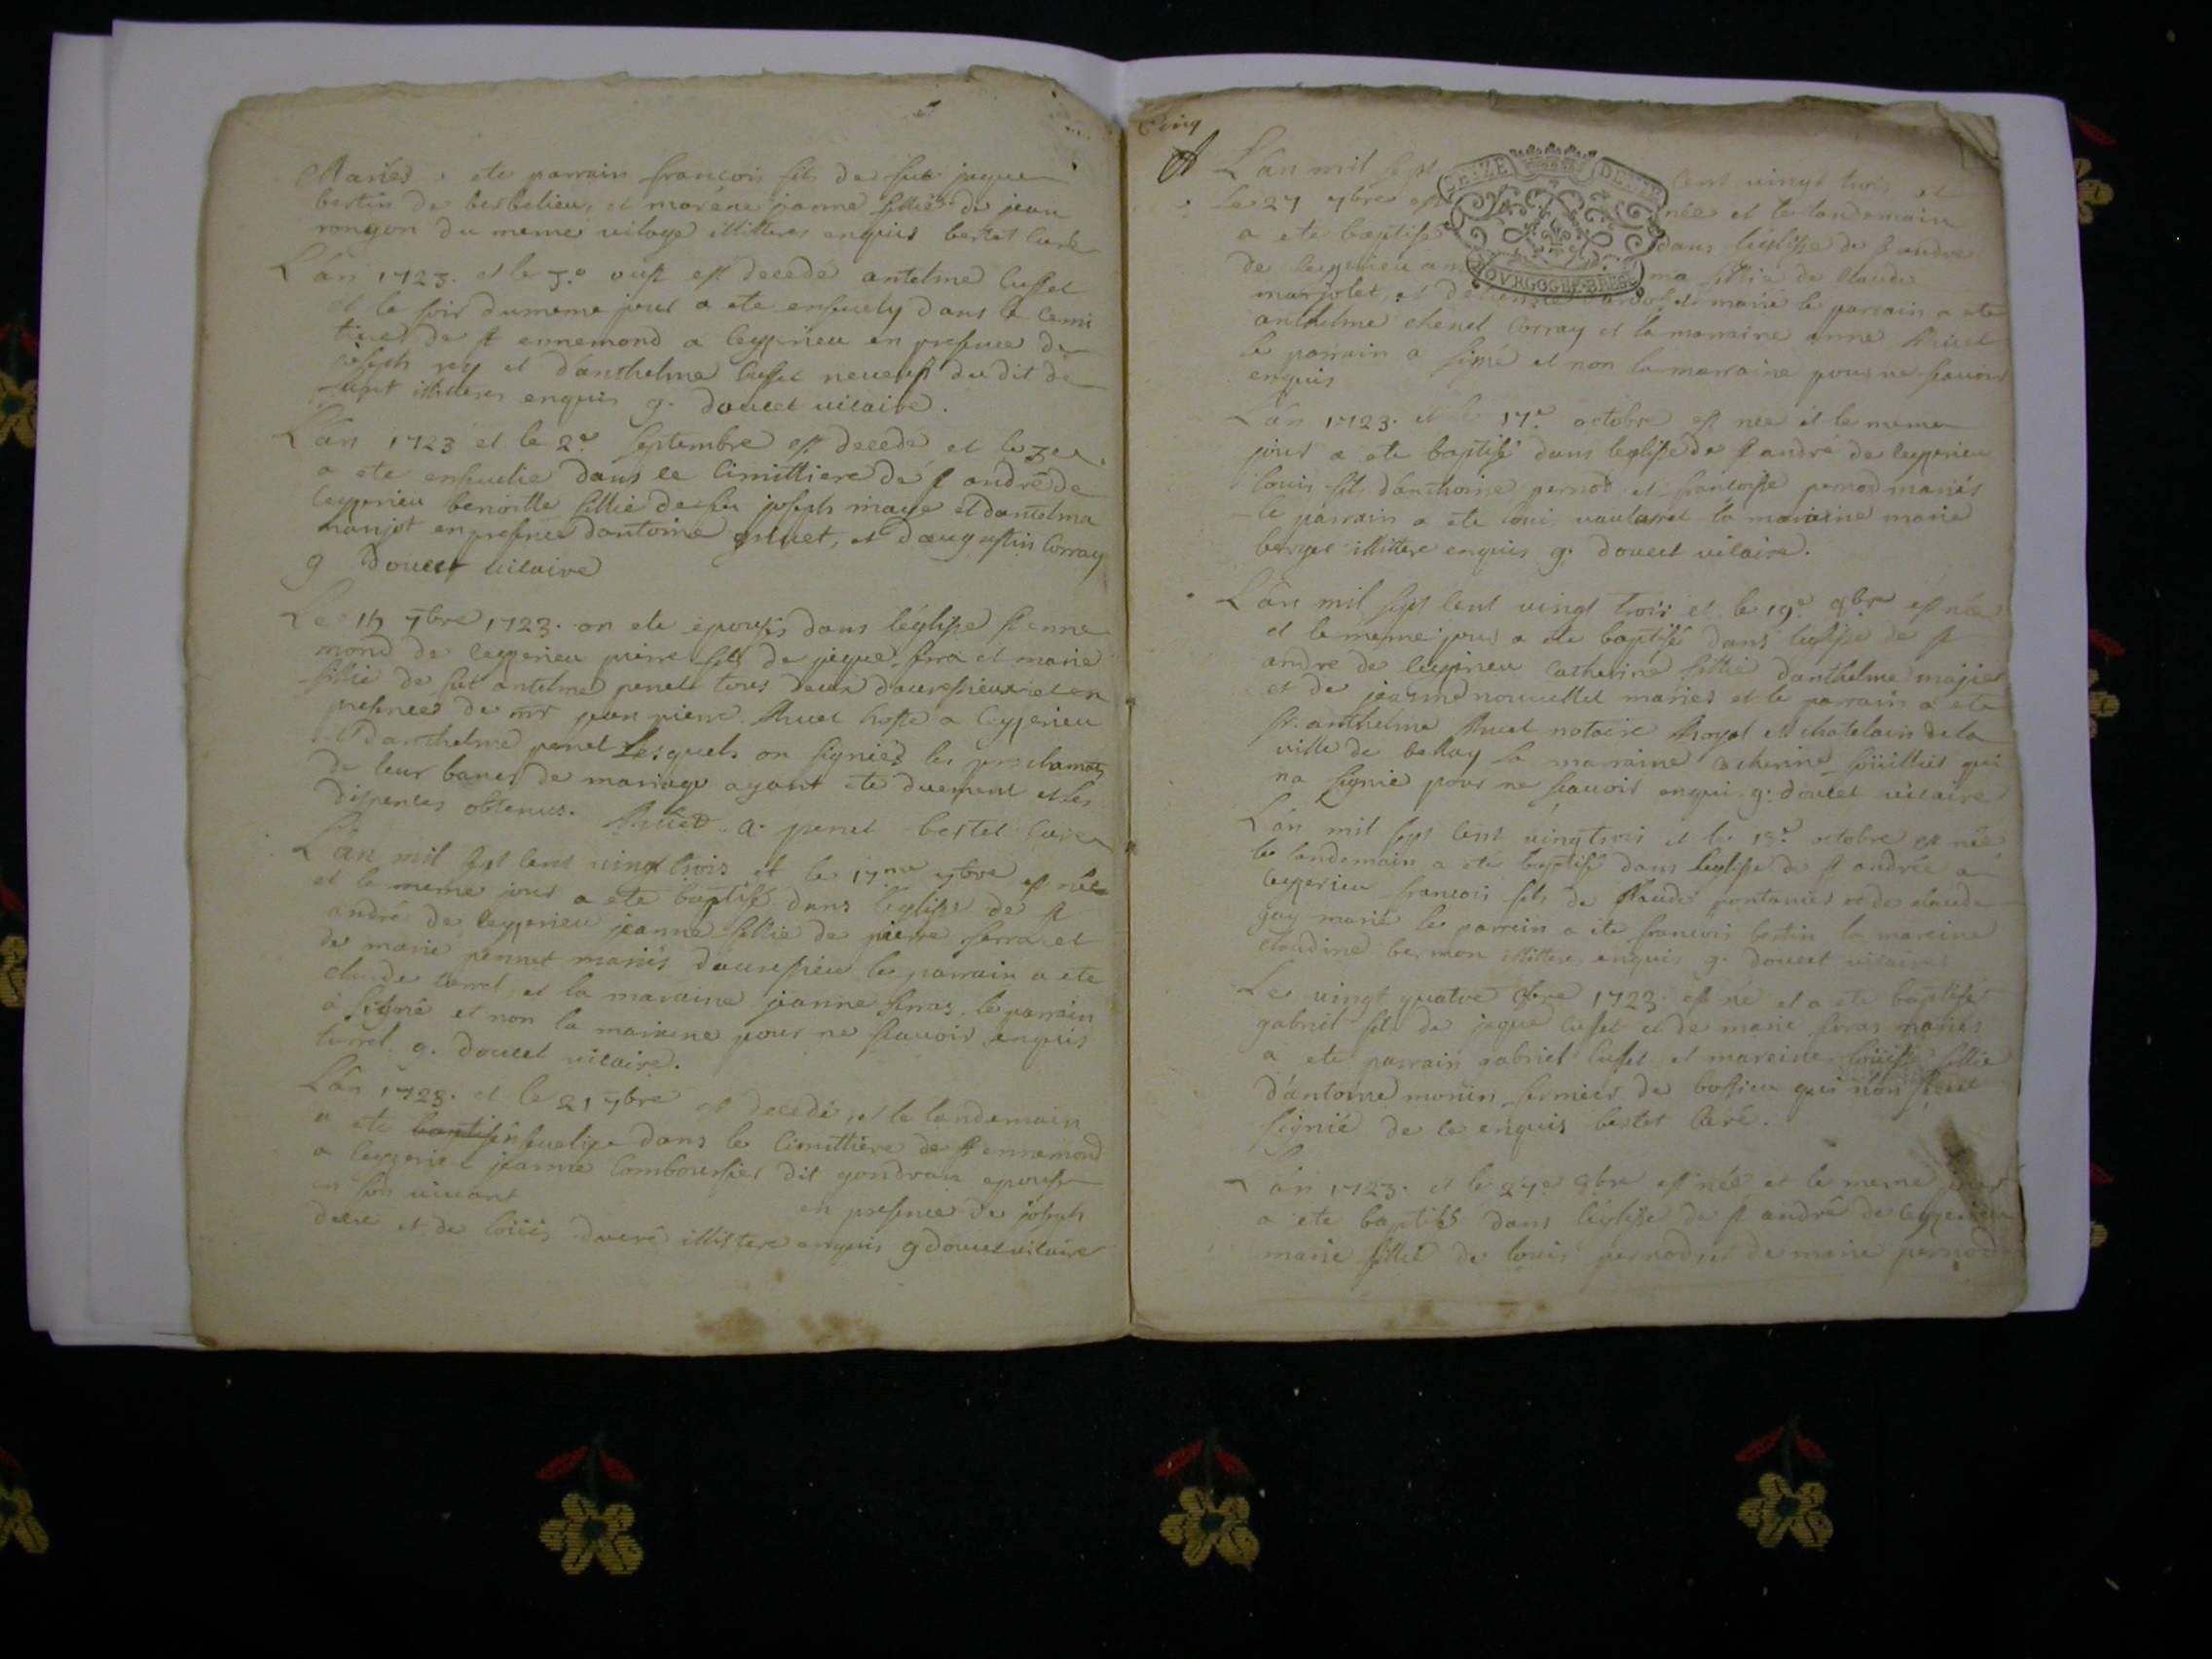 Mariés ete parrain francois fils de feu jaque
bertin de berbelieu, et marêne janne fillie de jean
du meme vilage illitteres enquis bertet curé
L'an 1723. et le 3.e oust est decedé antelme cusset
et le soir du meme jour a ete ensevely dans le cemi
tiere de st ennemond a leyzerieu en presence de
joseph rey et d'anthelme cusset neveust du dit de
funt illitteres enquis g. doucet vicaire.
L'an 1723 et le 2.e septembre est decedé et le 3e
a ete ensevelie dans le cimittiere de st andré de
leyzerieu benoitte fillie de feu joseph maye et d'antelma
manjot en presence d'antoine gruet, et d'augustin corray
g Doucet vicaire
Le 7bre 1723. on ete epousés dans l'eglisse st enne
mond de leyzerieu pierre fils de jaque serra et marie
fillie de feu antelme penet tous deux d'aversieux et en
presence de mr jean pierre Ruet hoste a leyzerieu
et d'anthelme penet Lesquels on signiés les proclamats
de leur bancs de mariage ayant ete duement et les
dispences obtenus. Ruet a. penet bertet curé
L'an mil sept cent vingt trois et le 17me 7bre est née
et le meme jour a ete baptisé dans l'eglisse de st
andré de leyzerieu jeanne fillie de pierre serra et
de marie pennet mariés d'aversieu le parrain a ete
claude turrel et la maraine jeanne serras, le parrain
a signé et non la maraine pour ne scavoir enquis
turrel g. doucet vicaire.
L'an 1723. et le 21 7bre est decedé, et le landemain
a ete dans le cimittiere de st ennemond
a jeanne combourssier dit gondran epousse
en son vivant en presence de joseph
et de loüis illittere enquis g doucet vicaire
Cinq
SEIZE DENIERS
BOVRGOGNE BRESSE
L'an mil sept cent vingt trois et
le 27 7bre est née et le landemain
a ete baptisé dans l'eglisse de st andré
de leyzerieu an ma fillie de claude
marjolet, et de mariés le parrain a ete
anthelme chenel corray et la marraine anne Ruet
le parrain a signé et non la marraine pour ne scavoir
enquis
L'an 1723. et le 17.e octobre est née et le meme
jour a ete baptisé dans l'eglisse de st andré de leyzerieu
louis fils d'anthoine pernod et francoisse pernod mariés
le parrain a ete loui vautaret la maraine marie
berger illittere enquis g. doucet vicaire.
L'an mil sept cent vingt trois et le 19.e 8bre est née
et le meme jour a ete baptisé dans l'eglisse de st
andre de leyzerieu catherine fillie d'anthelme majier
et de jeanne nouvellet mariés et le parrain a ete
sr. anthelme Ruet notaire Royal et chatelain de la
ville de bellay la marraine qui
na signié pour ne scavoir enqui g. doucet vicaire
L'an mil sept cent vingt trois et le 18.e octobre est née
le landemain a ete baptisé dans l'eglisse de st andrée a
leyzerieu francois fils de claude pontanier et de claude
gay mariés le parrein a ete francois bertin la mareine
claudine bermon illittere enquis g. doucet vicaire
Le vingt quatre 8bre 1723. est né et a ete baptisé
gabriel fils de jaque cusset et de marie serras mariés
a ete parrain gabriel cusset et mareine loüisse fillie
d'antoine monin fermier de bossieu qui non sceut
signié de ce enquis bertet curé.
L'an 1723. et le 27.e 8bre est née et le meme jour
a ete baptisé dans l'eglisse de st andré de leyzerieu
marie fillie de louis pernod et de marie pernod